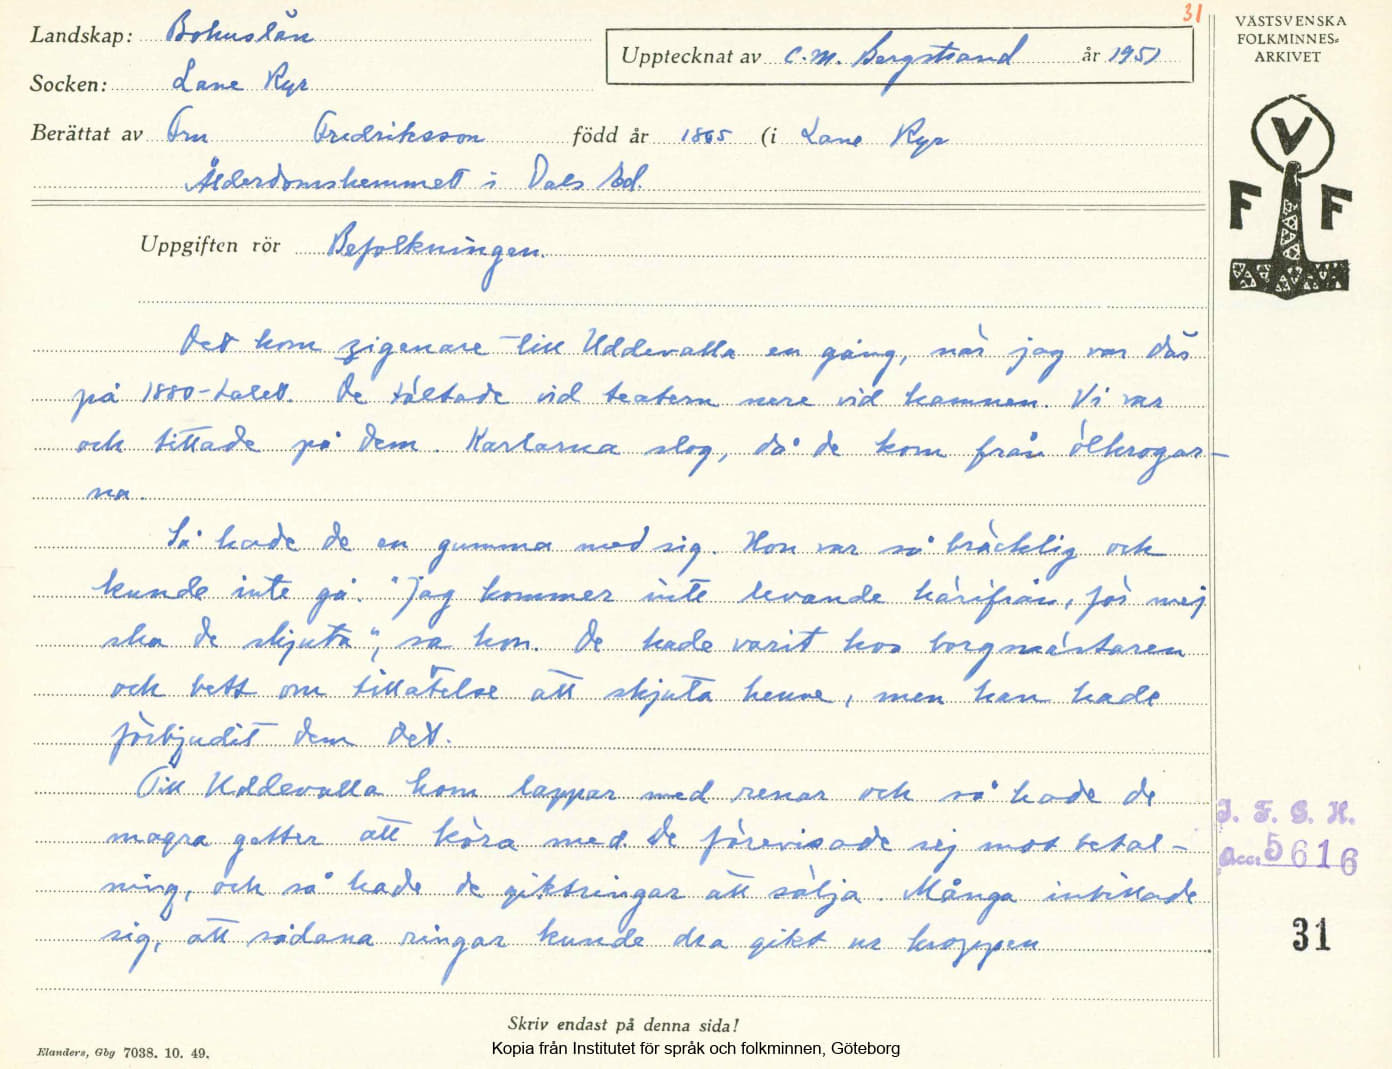 31
Landskap: Bohuslän
Upptecknat av C.M. Bergstrand år 1951
Socken: Lane Ryr
Berättat av Fru Fredriksson född år 1865 (i Lane Ryr
Ålderdomshemmet i Dals Ed.
VÄSTSVENSKA
FOLKMINNES-
ARKIVET
V
F F
Uppgiften rör Befolkningen.
Det kom zigenare till Uddevalla en gång, när jag var där
på 1880-talet. De tältade vid teatern nere vid hamnen. Vi var
och tittade på dem. Karlarna slog, då de kom från ölkrogar-
na.
Så hade de en gumma med sig. Hon var så bräcklig och
kunde inte gå. "Jag kommer inte levande härifrån, för mej
ska de skjuta", sa hon. De hade varit hos borgmästaren
och bett om tillåtelse att skjuta henne, men han hade
förbjudit dem det.
Till Uddevalla kom lappar med renar och så hade de
magra getter att köra med. De förevisade sej mot betal-
ning, och så hade de giktringar att sälja. Många inbillade
sig, att sådana ringar kunde dra gikt ur kroppen.
I. F. G. H.
acc. 5616
31
Skriv endast på denna sida!
Elanders, Gbg 7038. 10. 49.
Kopia från Institutet för språk och folkminnen, Göteborg